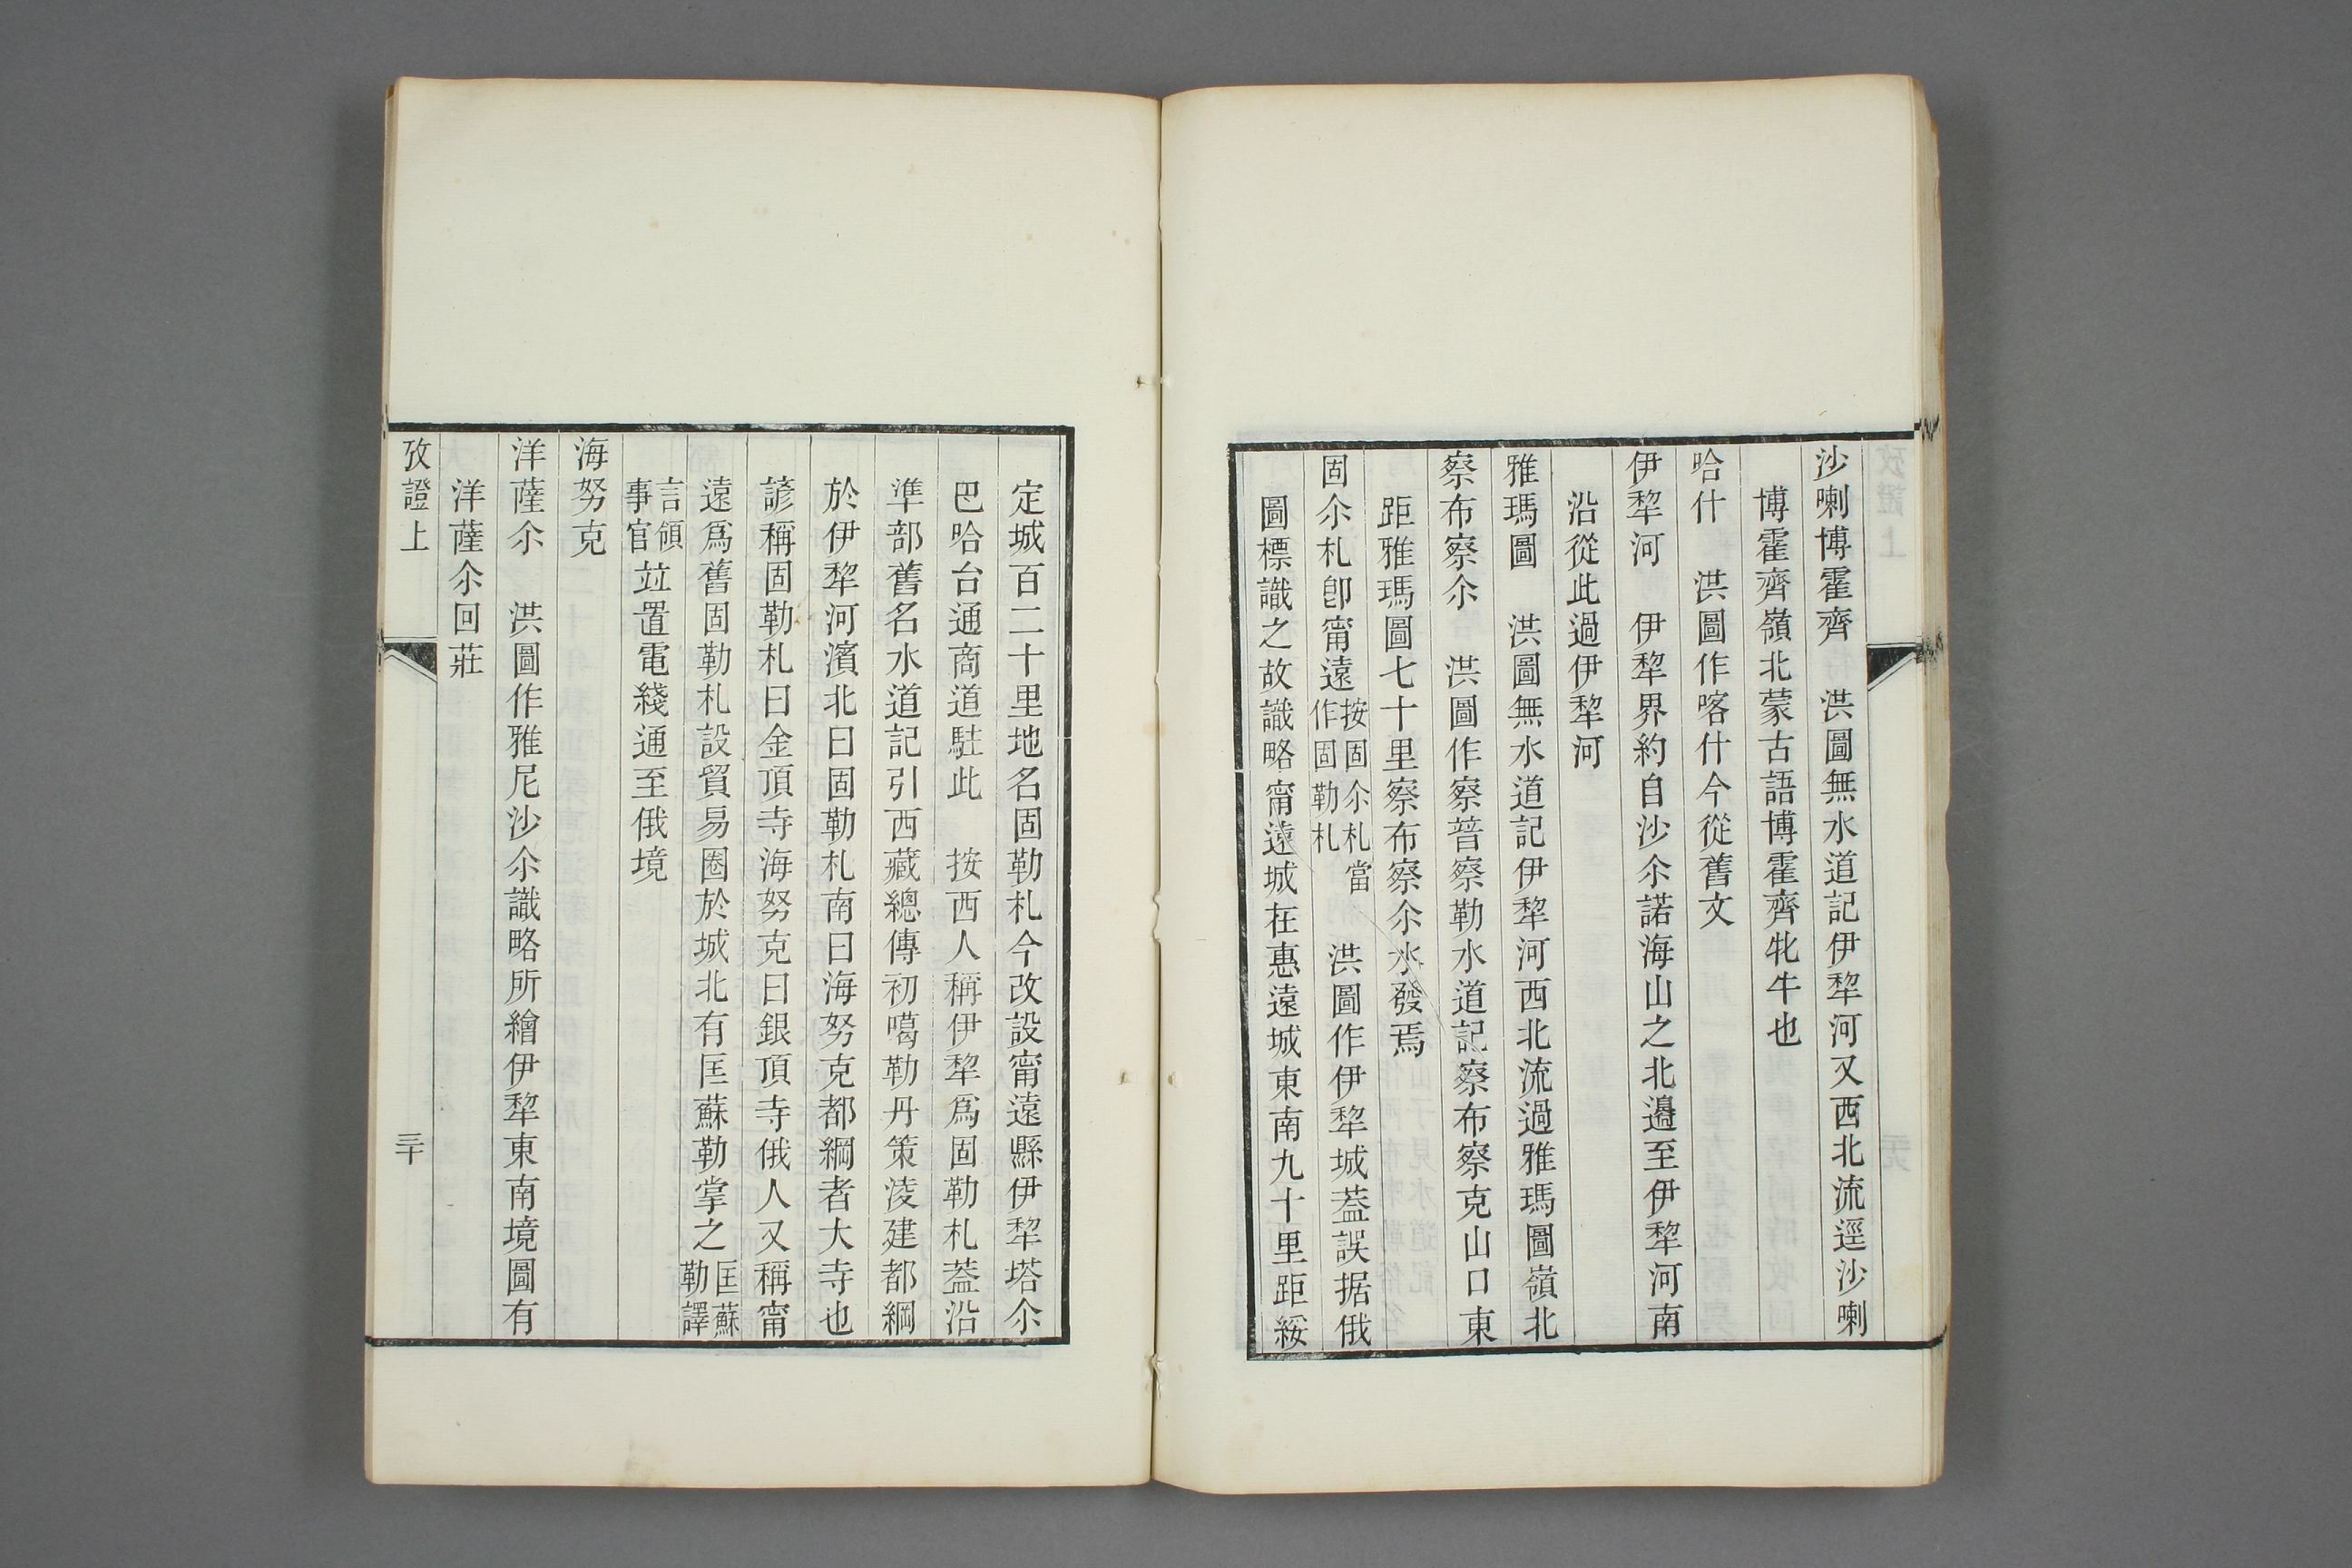 沙喇博霍齊　洪圖無水道記伊犂河又西北流逕沙喇
博霍齊嶺北蒙古語博霍齊牝牛也
哈什　洪圖作喀什今從舊文
伊犂河　伊犂界約自沙尒諾海山之北邊至伊犂河南
沿從此過伊犂河
雅瑪圖　洪圖無水道記伊犂河西北流過雅瑪圖嶺北
察布察尒　洪圖作察普察勒水道記察布察克山口東
距雅瑪圖七十里察布察尒水發焉
固尒札卽甯遠按固尒札當作固勒札　洪圖作伊犂城葢誤据俄
圖標識之故識略甯遠城在惠遠城東南九十里距綏
定城百二十里地名固勒札今改設甯遠縣伊犂塔尒
巴哈台通商道駐此　按西人稱伊犂爲固勒札葢沿
準部舊名水道記引西藏總傳初噶勒丹策淩建都綱
於伊犂河濱北曰固勒札南曰海努克都綱者大寺也
諺稱固勒札曰金頂寺海努克曰銀頂寺俄人又稱甯
遠爲舊固勒札設貿易圈於城北有匡蘇勒掌之匡蘇勒譯
言領事官竝置電綫通至俄境
海努克
洋薩尒　洪圖作雅尼沙尒識略所繪伊犂東南境圖有
洋薩尒回莊
攷證上
三十